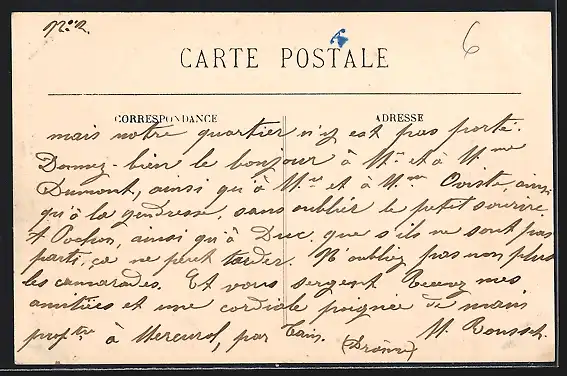 No. 2.
6
CARTE POSTALE
CORRESPONDANCE
ADRESSE
mais notre quartier n'y est pas porté.
Donnez-bien le bonjour à Mr et à Mme
Dumont, ainsi qu'à Mr et à Mme ainsi
qu'à la gendresse, sans oublier le petit sourire
et Pochon, ainsi qu'à Duc que s'ils ne sont pas
parti, ça ne peut tarder. N'oubliez pas non plus
les camarades. Et vous sergent Recevez mes
amitiés et une cordiale poignée de main
à Mercurol, par Tain. M. Roussel.
(Drôme)